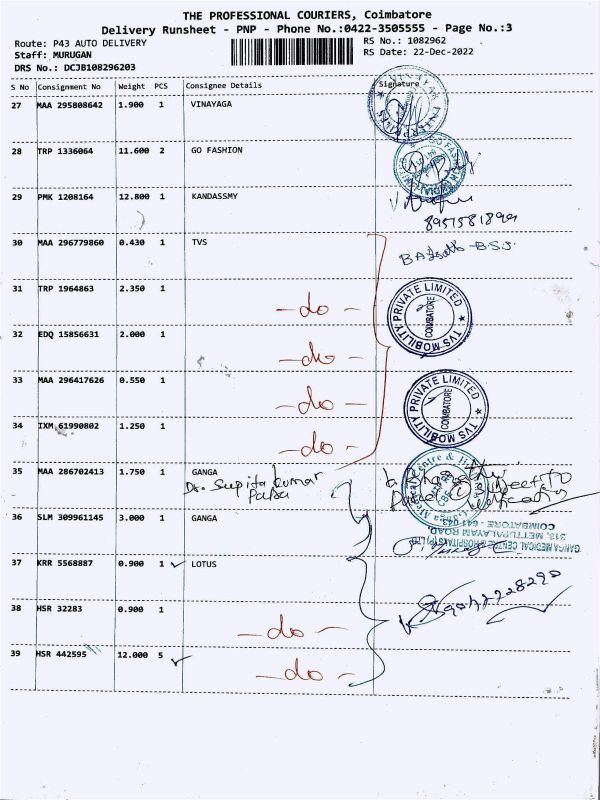 THE PROFESSIONAL COURIERS, Coimbatore
Delivery Runsheet - PNP - Phone No.:0422-3505555 - Page No.:3
Route: P43 AUTO DELIVERY RS No.: 1082962
Staff: MURUGAN RS Date: 22-Dec-2022
DRS No.: DCJB108296203
S No Consignment No Weight PCS Consignee Details Signature
27 MAA 295808642 1.900 1 VINAYAGA
28 TRP 1336064 11.600 2 GO FASHION
29 PMK 1208164 12.800 1 KANDASSMY
30 MAA 296779860 0.430 1 TVS
31 TRP 1964863 2.350 1 -do-
TVS MOBILITY PRIVATE LIMITED
COIMBATORE
32 EDQ 15856631 2.000 1 -do-
33 MAA 296417626 0.550 1 -do-
TVS MOBILITY PRIVATE LIMITED
COIMBATORE
34 IXM 61990802 1.250 1 -do-
35 MAA 286702413 1.750 1 GANGA
Dr.
36 SLM 309961145 3.000 1 GANGA
GANGA MEDICAL CENTRE & HOSPITALS (P) LTD
313, METTUPALAYAM ROAD,
COIMBATORE - 641 043
37 KRR 5568887 0.900 1 LOTUS
38 HSR 32283 0.900 1 -do-
39 HSR 442595 12.000 5 -do-